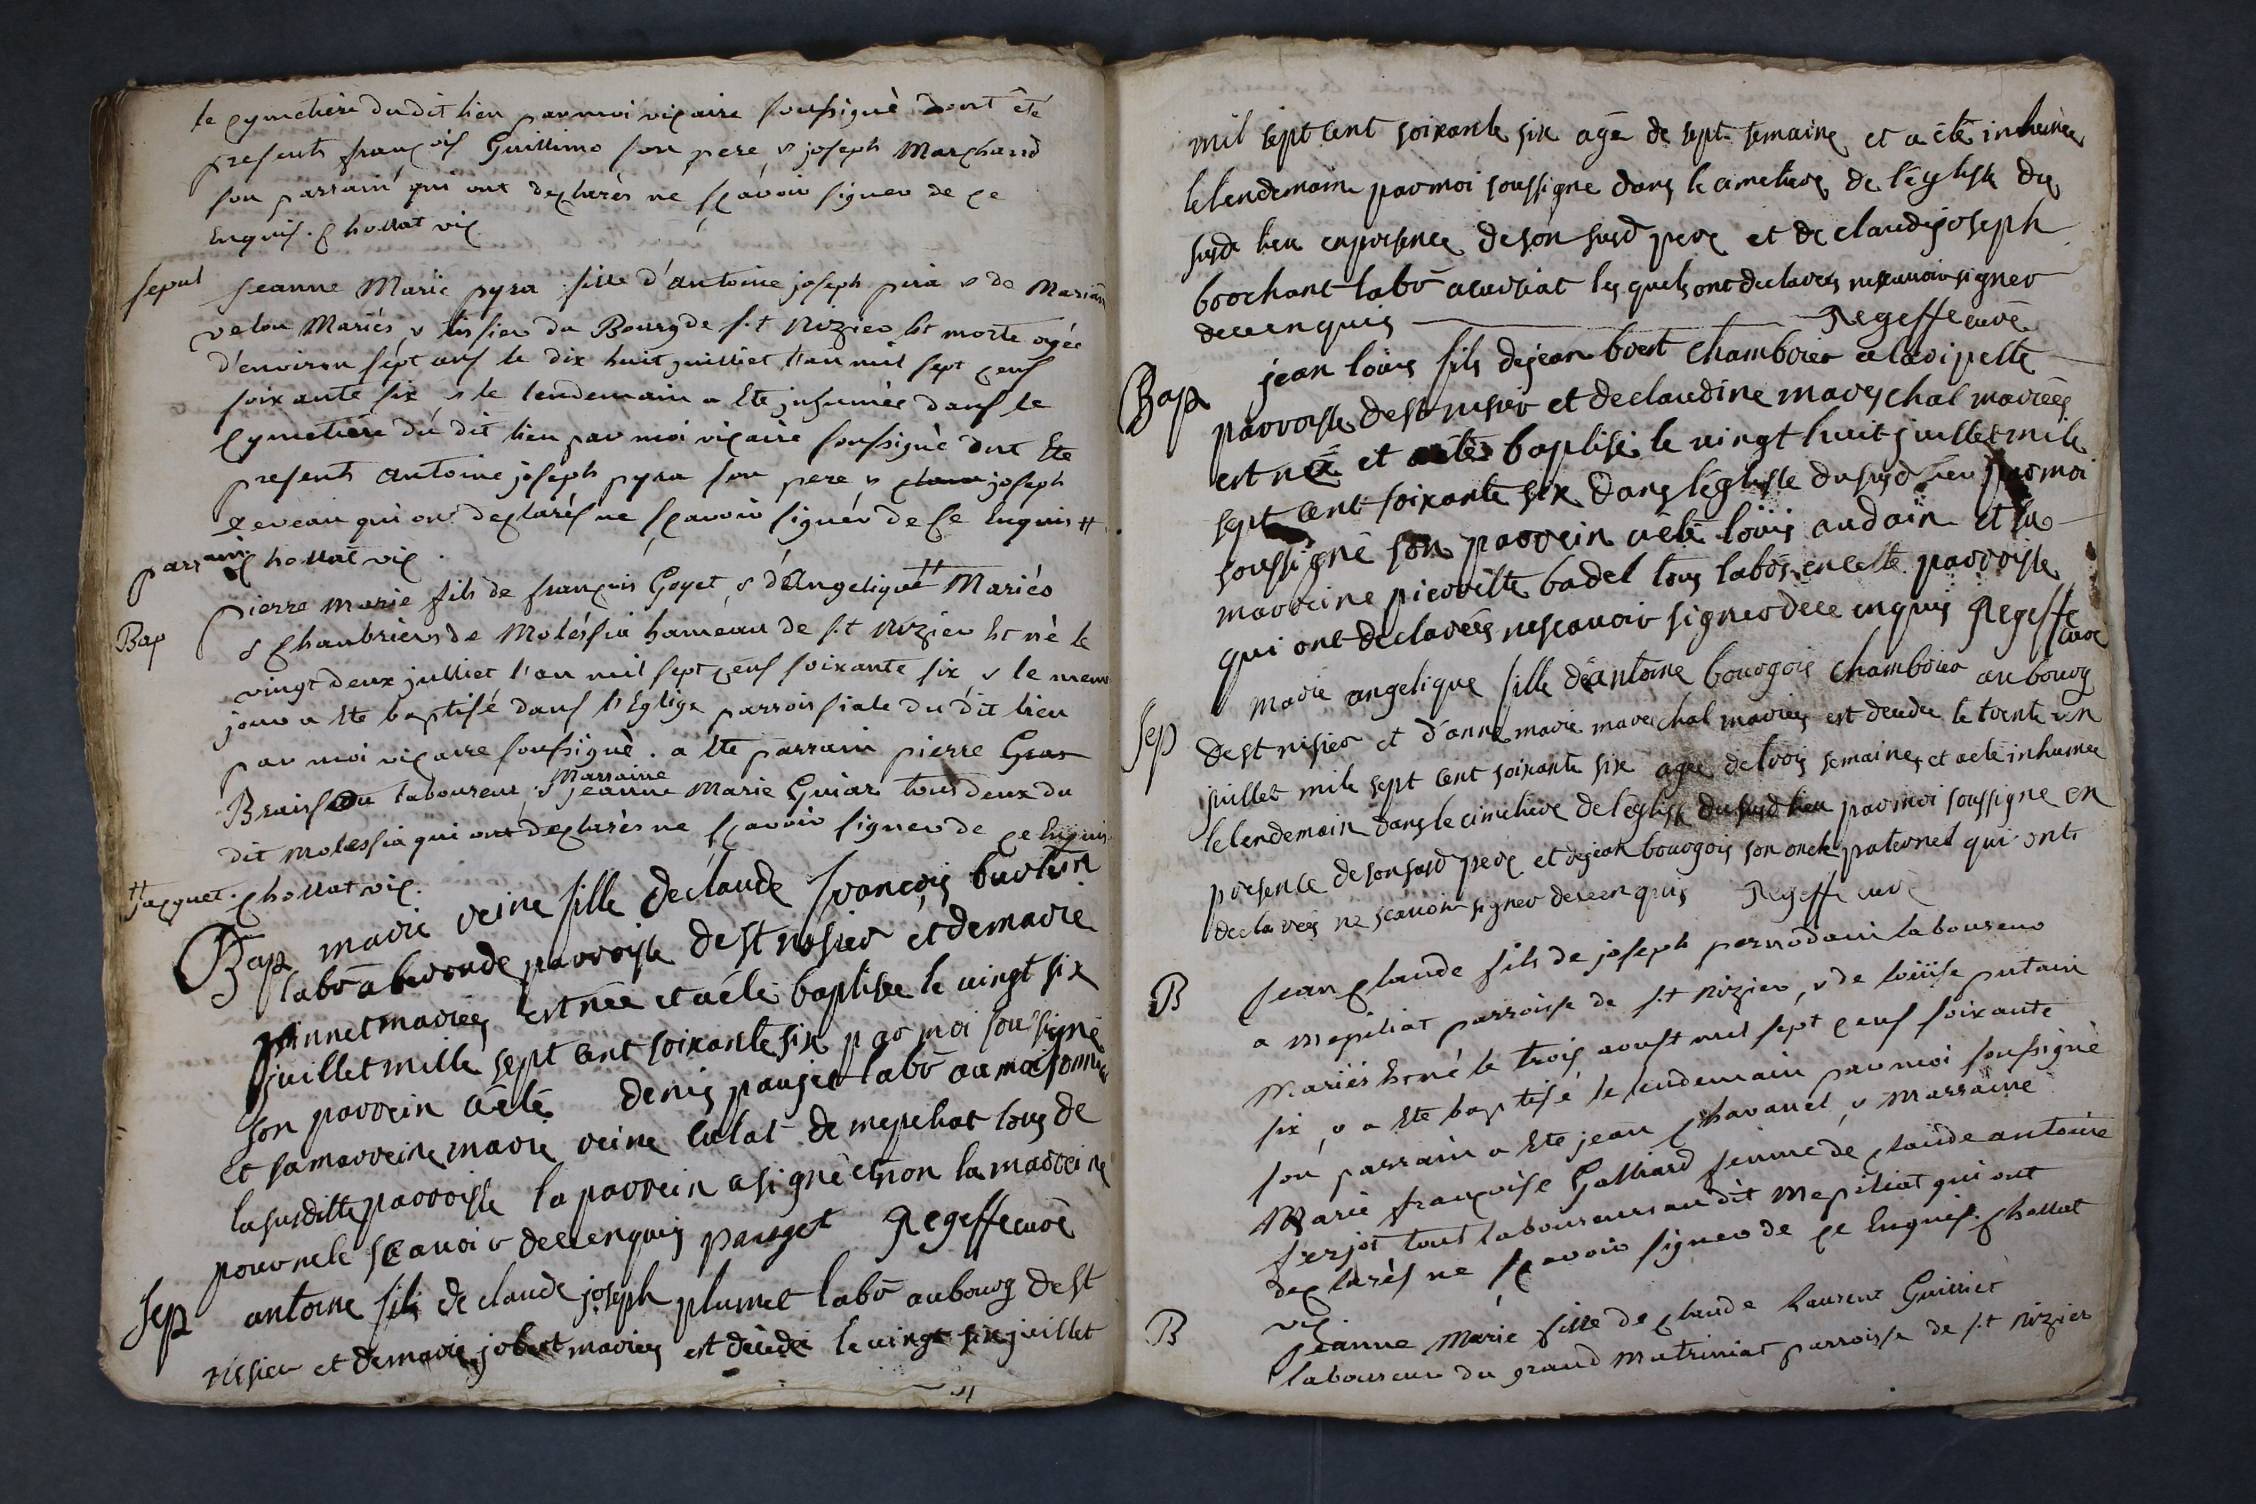 le cymetiére du dit lieu par moi vicaire soussignè dont été
presents françois Guillimo son pere, & joseph Marchand
son parrain qui ont declarés ne sçavoir signer de ce
Enquis. Chollat vic
sepul Jeanne Marie pyra fille d'antoine joseph pira & de Marian
velou Mariés & du Bourg de st Nizier Et morte agée
d'environ sept ans le dix huit juilliet l'an mil sept cens
soixante six, & le lendemain a Eté inhumée dans le
Cymetiére du dit lieu par moi vicaire soussignè dont Eté
presents antoine joseph pyra son pere & joseph
qui ont declarés ne sçavoir signer de Ce Enquis #
parrain Chollat vic.
Bap pierre marie fils de françois Goyet & d'Angelique # Mariés
& Chanbriers de Moléssia hameau de st Nizier Et né le
vingt deux julliet l'an mil sept cens soixante six & le meme
jour a Eté baptisé dans l'Eglise parroissiale du dit lieu
par moi vicaire soussignè. a Eté parrain pierre Gras
laboureur & Marraine Jeanne Marie Guiar tous deux du
dit Molessia qui ont declarés ne sçavoir signer de ce Enquis
# Jacquet. Chollat vic.
Bap marie reine fille de claude françois burtin
labō a beronde parroisse de st nisier et de marie
pinnet mariés est née et a été baptisée le vingt six
juillet mille sept cent soixante six par moi soussigné
son parrein a été denis pauget labō au
et sa marreine marie reine culat de mepeliat tous de
la susditte parroisse le parrein a signé et non la marreine
pour ne le scavoir de ce enquis pauget Regeffe curé
Sep antoine fils de claude joseph plumet labō au bourg de st
nisier et de marie jobert mariés est decédé le vingt six juillet
mil sept cent soixante six agé de sept semaine et a été inhumée
le lendemain par moi soussigne dans le cimetiere de l'eglise du
susd lieu en presence de son susd pere et de claude joseph
brochant labō a curciat les quels ont declarés ne scauoir signer
de ce enquis Regeffe curé
Bap jean loüis fils de jean boest chambrier a la ripette
parroisse de st nisier et de claudine mareschal mariées
est né et a été baptisé le vingt huit juillet mile
sept cent soixante six dans l'eglisse du susd lieu par moi
soussigné son parrein a été loüis audain et sa
marreine pierrette badel tous labōs en cette parroisse
qui ont declarées ne scauoir signer de ce enquis Regeffe
curé
Sep marie angelique fille de antoine bourgois chambrier au bourg
de st nisier et d'anne marie marechal mariés est decedée le trente un
juillet mile sept cent soixante six agée de trois semaines et a été inhumée
le lendemain dans le cimetiere de l'eglise du susd lieu par moi soussigne en
presence de son susd pere et de jean bourgois son oncle paternel qui ont
declarés ne scauoir signer de ce enquis Regeffe curé
B Jean Claude fils de joseph pernodain laboureur
a mepiliat parroisse de st Nizier, & de loüise putain
Mariés Et né le trois aoust mil sept cens soixante
six, & a Eté baptisé le lendemain par moi soussigné
son parrain a Eté jean Chavanel, & Marraine
Marie françoise Galliard femme de Claude antoine
ferjot tous laboureurs au dit Mepiliat qui ont
declarés ne sçavoir signer de ce Enquis. Chollat
vic
B Jeanne Marie fille de Claude Laurent Guillet
laboureur du grand Matriniat parroisse de st Nizier